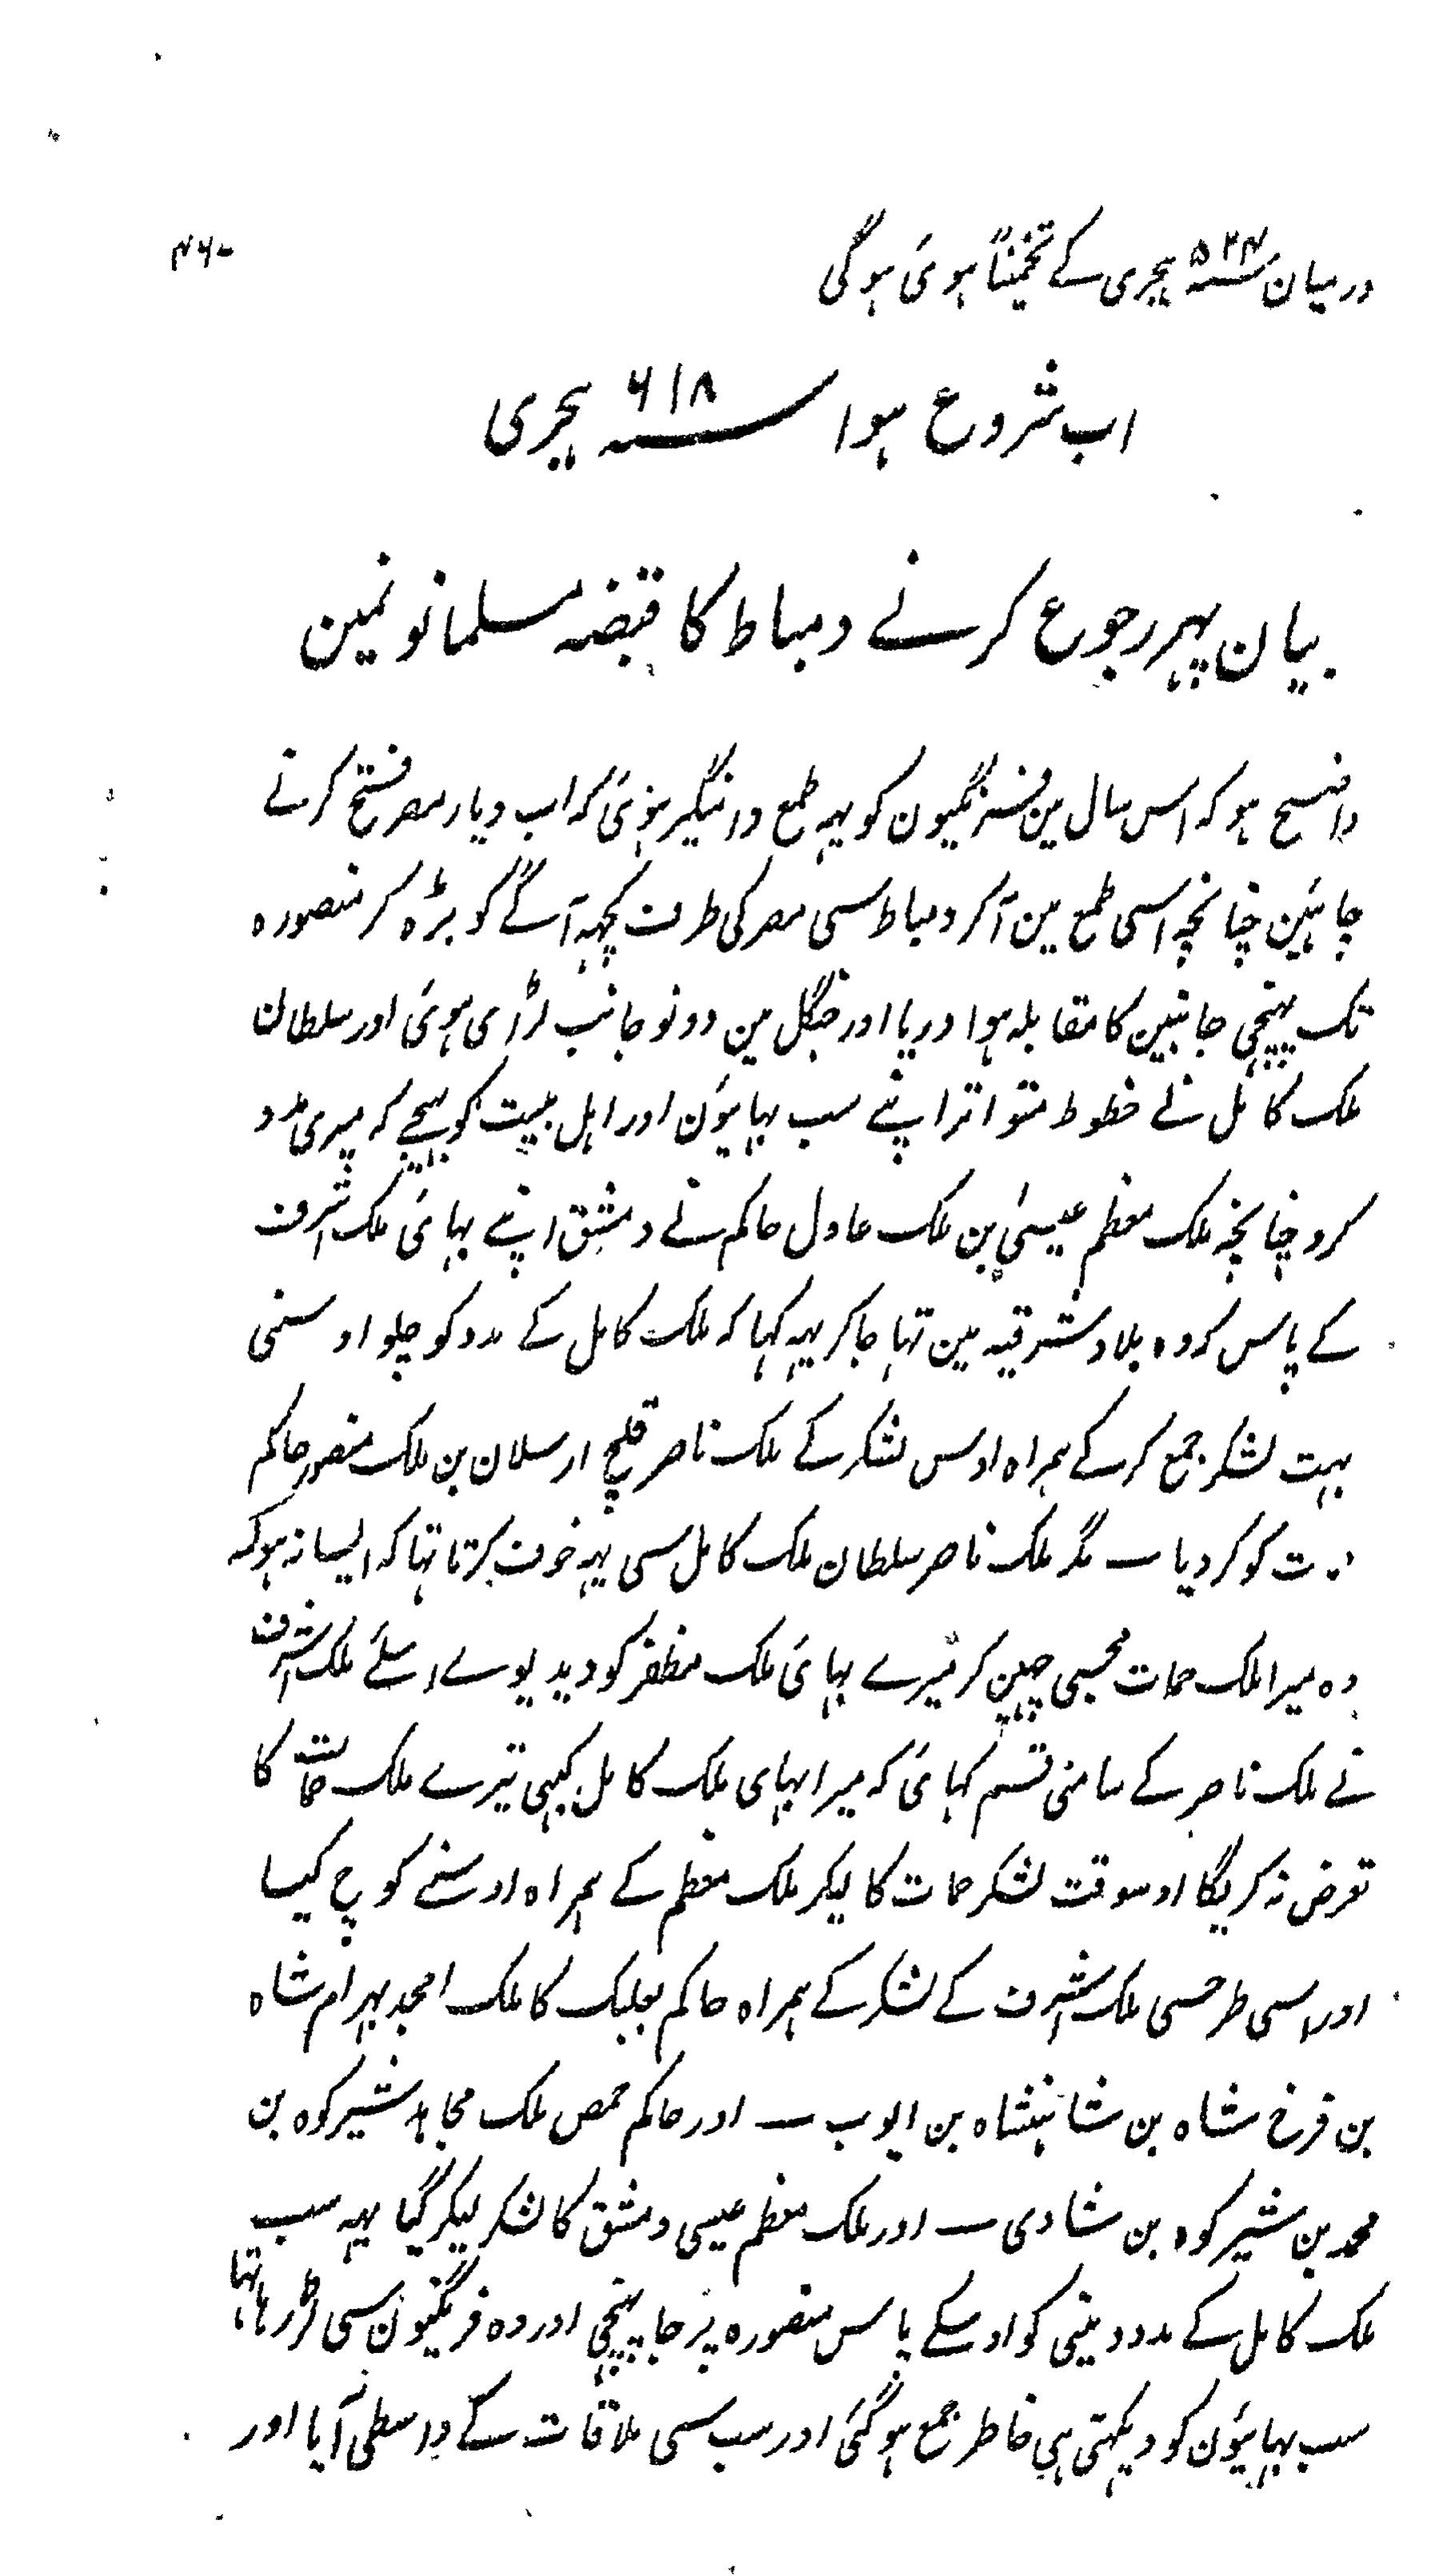 ۴۶۰
درمیان ۵۲۴ سنہ ہجری کے تخمیناً ہوئی ہوگی
اب شروع ہوا سنہ ۶۱۸ ہجری
بیان پہر رجوع کرنے دمیاط کا قبضہ مسلمانونمین
واضح ہو کہ اس سال مین فرنگیون کو یہہ طمع دامنگیر ہوئی کہ اب دیار مصر فتح کرنے
چاہئین چنانچہ اسی طمع مین آکر دمیاط سی مصر کی طرف کچہہ آگے کو بڑہ کر منصورہ
تک پہنچی جانبین کا مقابلہ ہوا دریا اور جنگل مین دونو جانب لڑائی ہوئی اور سلطان
ملک کامل نے خطوط متواتر اپنے سب بہایئون اور اہل بیت کو بہیجے کہ میری مدد
کرو چنانچہ ملک معظم عیسیٰ بن ملک عادل حاکم نے دمشق اپنے بہائی ملک اشرف
کے پاس کہ وہ بلاد شرقیہ مین تہا جاکر یہہ کہا کہ ملک کامل کے مدد کو چلو اوسنی
بہت لشکر جمع کرکے ہمراہ اوس لشکر کے ملک ناصر قلج ارسلان بن ملک منصور حاکم
ت کو کردیا ـ مگر ملک ناصر سلطان ملک کامل سی یہہ خوف کرتا تہا کہ ایسا نہو کہ
وہ میرا ملک حمات مجسی چہین کر میرے بہائی ملک مظفر کو دیدیوے اسلئے ملک اشرف
نے ملک ناصر کے سامنی قسم کہائی کہ میرا بہای ملک کامل کبہی تیرے ملک حمات کا
تعرض نہ کریگا اوسوقت لشکر حمات کا لیکر ملک معظم کے ہمراہ اوسنے کوچ کیا
اور اسی طرحسی ملک اشرف کے لشکر کے ہمراہ حاکم بعلبک کا ملک امجد بہرام شاہ
بن فرخ شاہ بن شاہنشاہ بن ایوب ـ اور حاکم حمص ملک مجاہد شیرکوہ بن
محمد بن شیرکوہ بن شادی ـ اور ملک معظم عیسی دمشق کا لشکر لیکر گیا یہہ سب
ملک کامل کے مدد دینی کو اوسکے پاس منصورہ پر جا پہنچی اور وہ فرنگیون سی لڑ رہا تہا
سب بہایئون کو دیکہتی ہی خاطر جمع ہوگئی اور سب سی ملاقات کے واسطی آیا اور